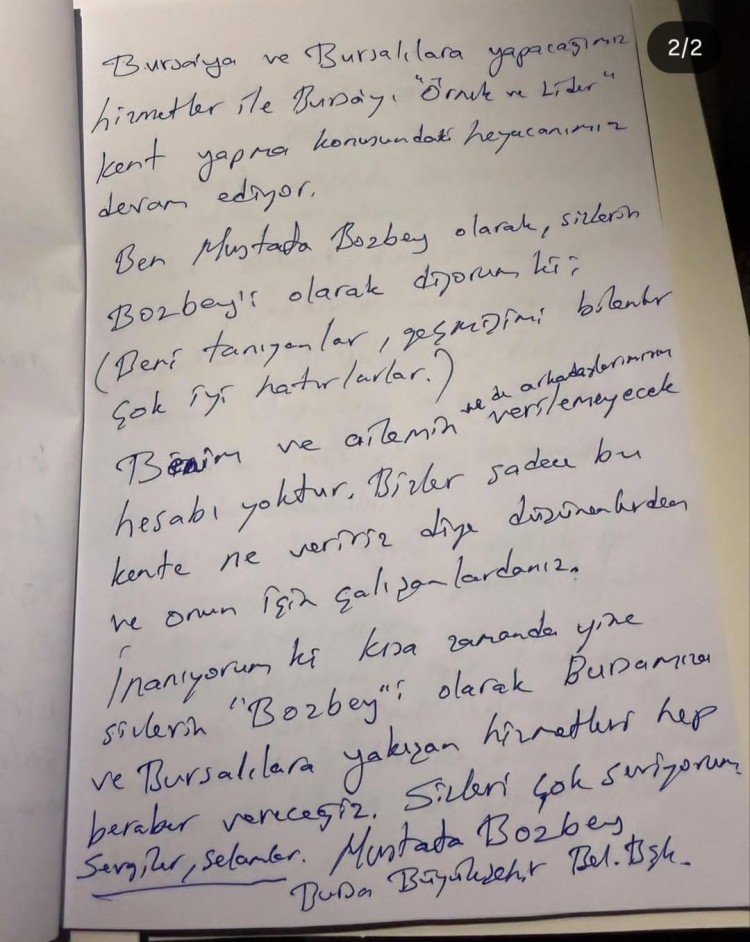 2/2
Bursa'ya ve Bursalılara yapacağımız
hizmetler ile Bursa'yı "Örnek ve Lider"
kent yapma konusundaki heyecanımız
devam ediyor.
Ben Mustafa Bozbey olarak, sizlerin
Bozbey'i olarak diyorum ki;
(Beni tanıyanlar, geçmişimi bilenler
çok iyi hatırlarlar.)
Benim ve ailemin ve de arkadaşlarımın verilemeyecek
hesabı yoktur. Bizler sadece bu
kente ne veririz diye düşünenlerden
ve onun için çalışanlardanız.
İnanıyorum ki kısa zamanda yine
sizlerin "Bozbey"i olarak Bursamıza
ve Bursalılara yakışan hizmetleri hep
beraber vereceğiz. Sizleri çok seviyorum.
Sevgiler, selamlar. Mustafa Bozbey
Bursa Büyükşehir Bel. Bşk.